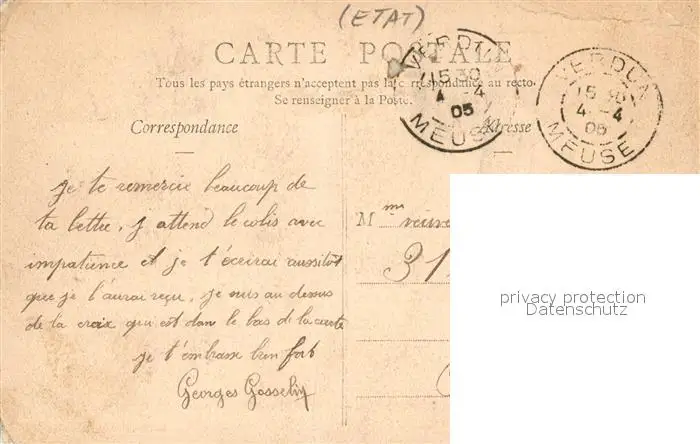 (ETAT)
CARTE POSTALE
Tous les pays étrangers n'acceptent pas la correspondance au recto.
Se renseigner à la Poste.
VERDUN
15 30
4 - 4
05
MEUSE
VERDUN
15 30
4 - 4
05
MEUSE
Correspondance
Adresse
je te remercie beaucoup de
ta lettre, j attend le colis avec
impatience et je t'éceirai aussitot
que je l'aurai reçu, je suis au dessus
de la croix qui est dans le bas de la carte
je t'embrasse bien fort
Georges Gosselin
Mme veuve
31
privacy protection
Datenschutz